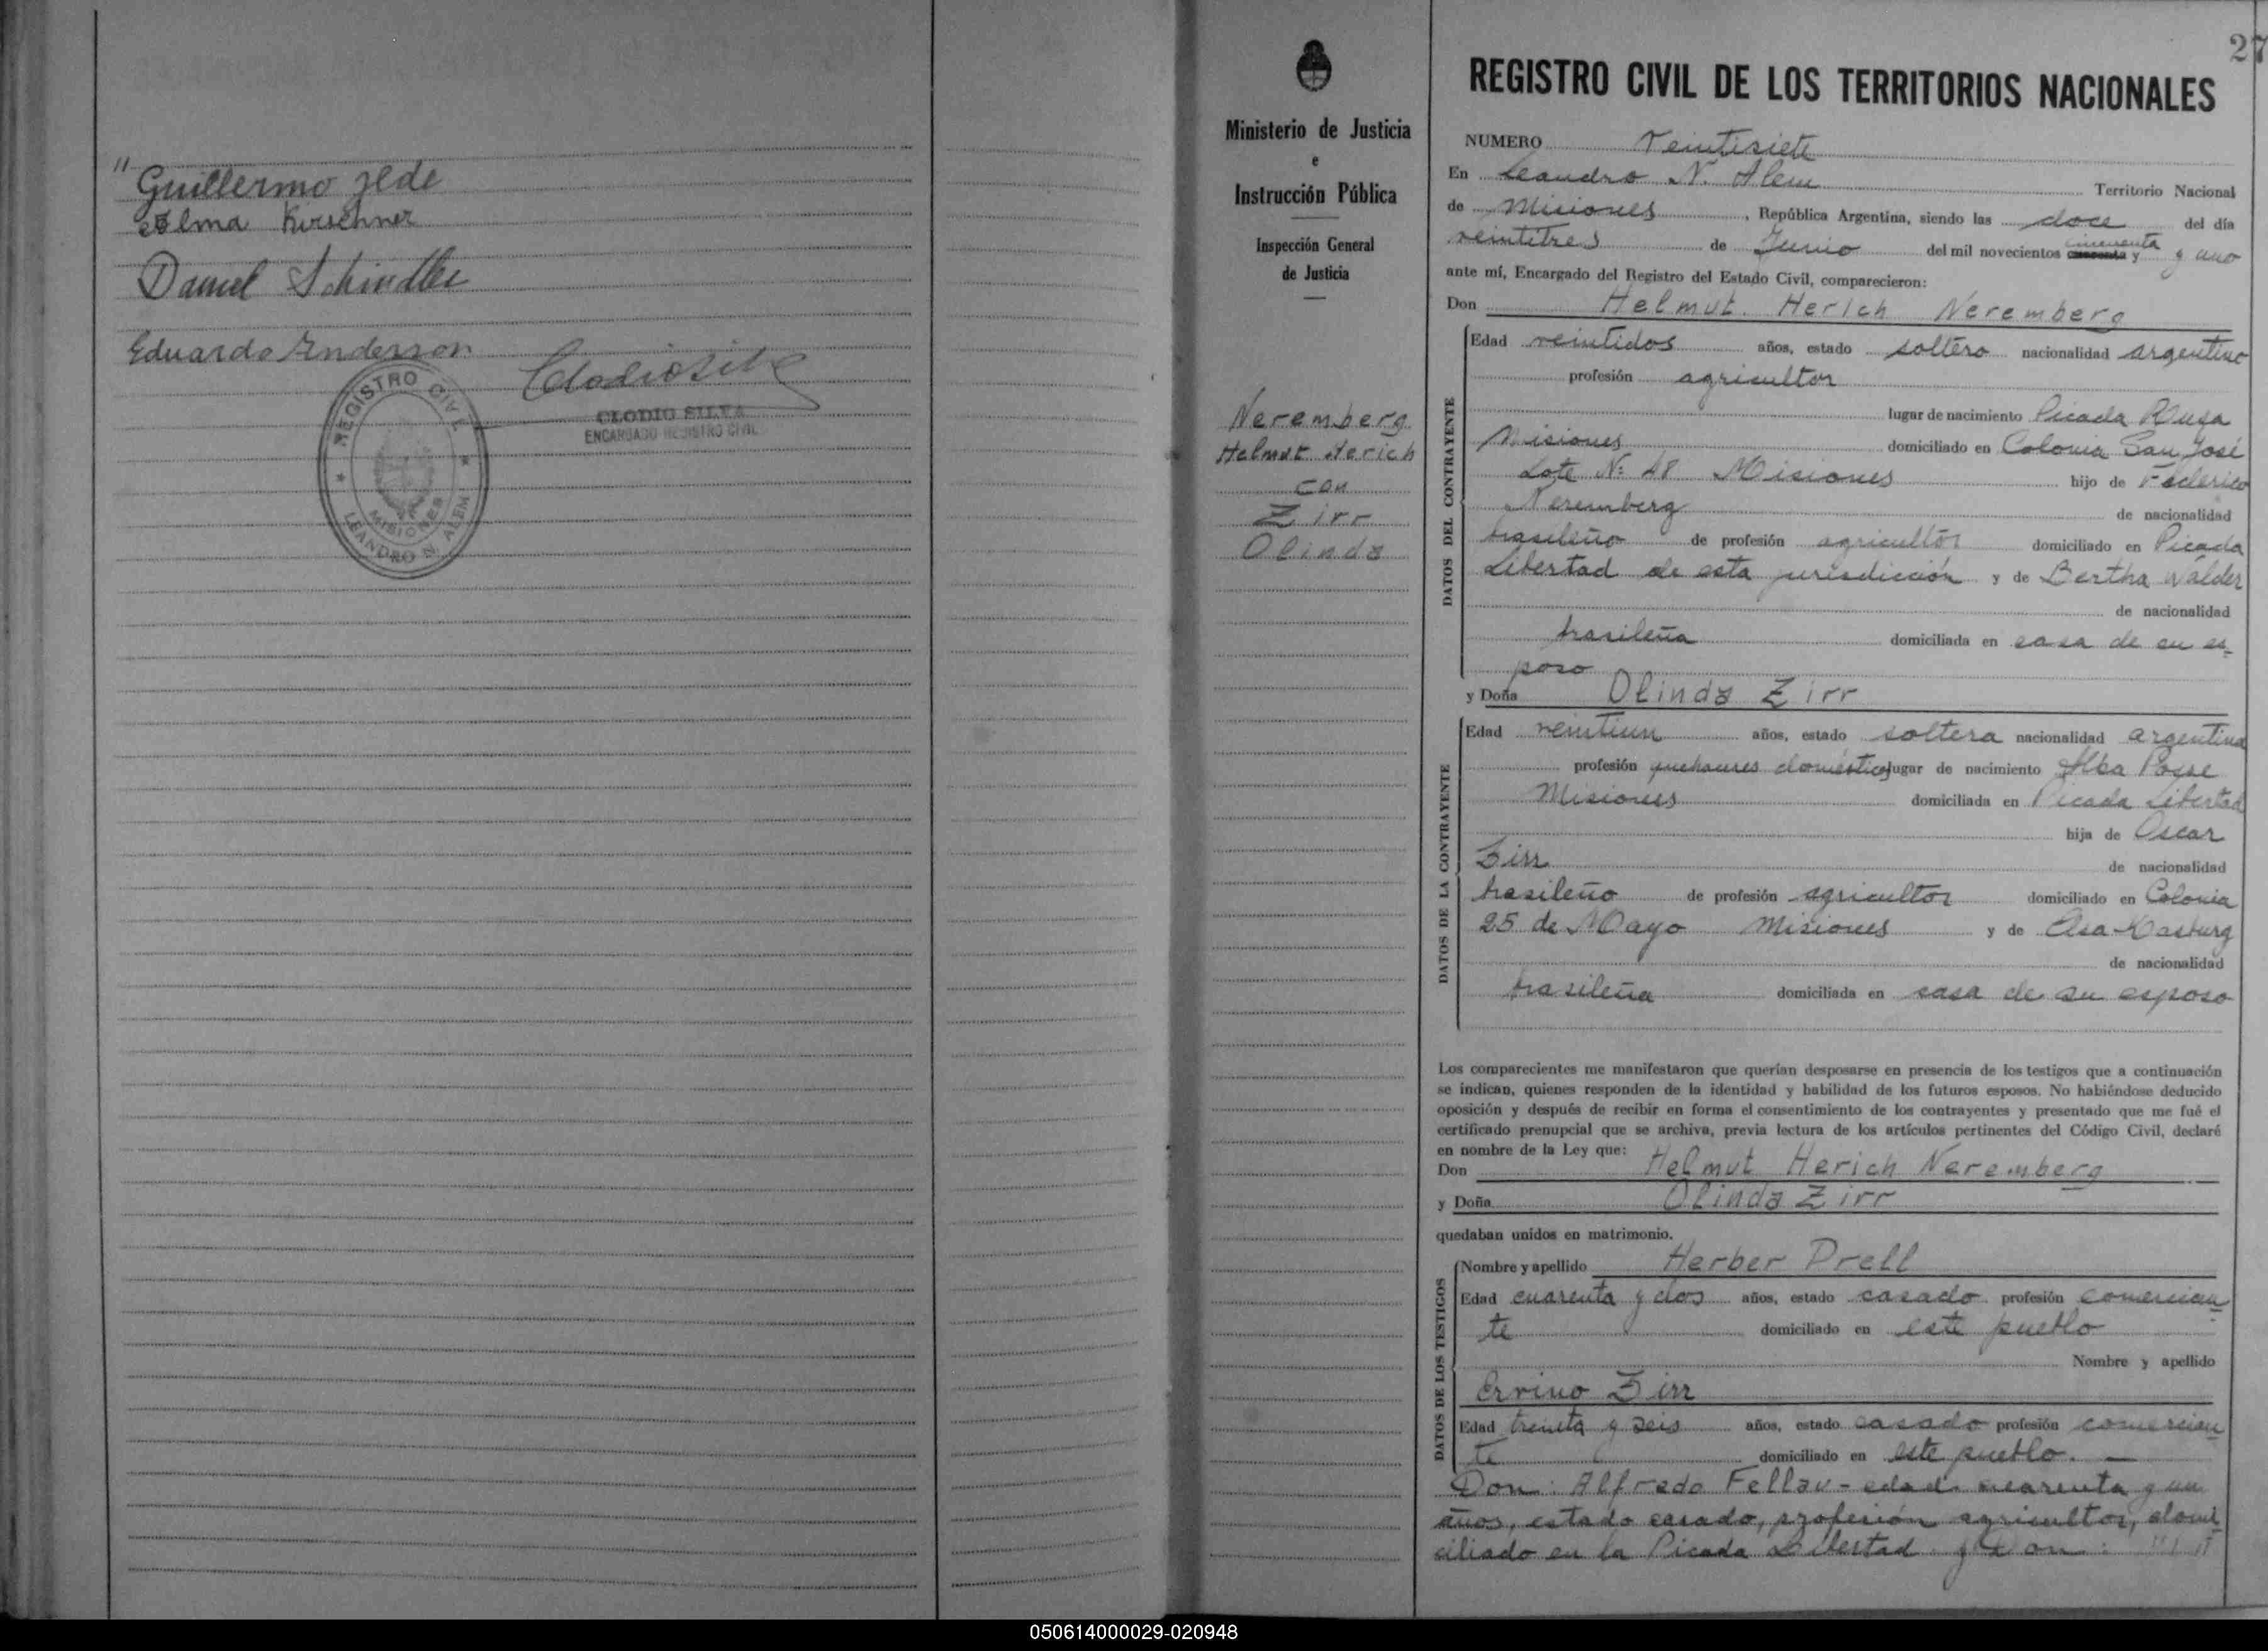 "
Guillermo Jede
Selma Kirschner
Daniel Schindler
Eduardo Enderson
Clodio Silva
CLODIO SILVA
ENCARGADO REGISTRO CIVIL
REGISTRO CIVIL
MISIONES
LEANDRO N. ALEM
Ministerio de Justicia
e
Instrucción Pública
Inspección General
de Justicia
Neremberg
Helmut Herich
con
Zirr
Olinda
27
REGISTRO CIVIL DE LOS TERRITORIOS NACIONALES
NUMERO Veintisiete
En Leandro N. Alem Territorio Nacional
de Misiones, República Argentina, siendo las doce del día
veintitres de Junio del mil novecientos cincuenta y uno
ante mí, Encargado del Registro del Estado Civil, comparecieron:
Don Helmut Herich Neremberg
DATOS DEL CONTRAYENTE
Edad veintidos años, estado soltero nacionalidad argentino
profesión agricultor
lugar de nacimiento Picada Rusa
Misiones domiciliado en Colonia San José
Lote Nº 48 Misiones hijo de Federico
Neremberg de nacionalidad
brasileño de profesión agricultor domiciliado en Picada
Libertad de esta jurisdicción y de Bertha Walder
de nacionalidad
brasileña domiciliada en casa de su es-
poso
y Doña Olinda Zirr
DATOS DE LA CONTRAYENTE
Edad veintiun años, estado soltera nacionalidad argentina
profesión quehaceres domésticos lugar de nacimiento Alba Posse
Misiones domiciliada en Picada Libertad
hija de Oscar
Zirr de nacionalidad
brasileño de profesión agricultor domiciliado en Colonia
25 de Mayo Misiones y de Elsa Kasburg
de nacionalidad
brasileña domiciliada en casa de su esposo
Los comparecientes me manifestaron que querían desposarse en presencia de los testigos que a continuación
se indican, quienes responden de la identidad y habilidad de los futuros esposos. No habiéndose deducido
oposición y después de recibir en forma el consentimiento de los contrayentes y presentado que me fué el
certificado prenupcial que se archiva, previa lectura de los artículos pertinentes del Código Civil, declaré
en nombre de la Ley que:
Don Helmut Herich Neremberg
y Doña Olinda Zirr
quedaban unidos en matrimonio.
DATOS DE LOS TESTIGOS
Nombre y apellido Herber Drell
Edad cuarenta y dos años, estado casado profesión comercian-
te domiciliado en este pueblo
Nombre y apellido
Ervino Zirr
Edad treinta y seis años, estado casado profesión comercian-
te domiciliado en este pueblo. —
Don: Alfredo Fellau - edad cuarenta y un
años, estado casado, profesión agricultor, domi-
ciliado en la Picada Libertad y Don:
050614000029-020948